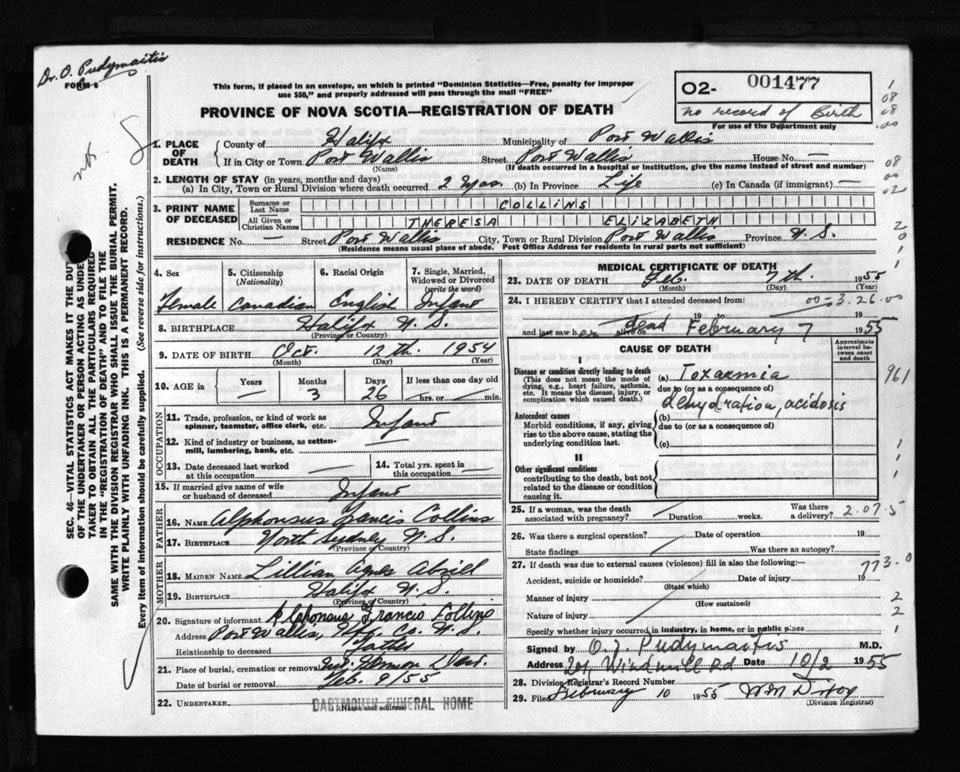 Dr. O. Pudymaitis
FORM 6
This form, if placed in an envelope, on which is printed "Dominion Statistics—Free, penalty for improper
use $50," and properly addressed will pass through the mail "FREE"
PROVINCE OF NOVA SCOTIA—REGISTRATION OF DEATH
02- 001477
no record of Birth
For use of the Department only
1. PLACE OF DEATH
County of Halifx Municipality of Port Wallis
If in City or Town Port Wallis Street Port Wallis House No. —
(Name) (If death occurred in a hospital or institution, give the name instead of street and number)
2. LENGTH OF STAY (in years, months and days)
(a) In City, Town or Rural Division where death occurred 2 mos. (b) In Province Life (c) In Canada (if immigrant) —
3. PRINT NAME OF DECEASED
Surname or Last Name COLLINS
All Given or Christian Names THERESA ELIZABETH
RESIDENCE No. — Street Port Wallis City, Town or Rural Division Port Wallis Province N.S.
(Residence means usual place of abode. Post Office Address for residents in rural parts not sufficient)
SEC. 46—VITAL STATISTICS ACT MAKES IT THE DUTY
OF THE UNDERTAKER OR PERSON ACTING AS UNDER
TAKER TO OBTAIN ALL THE PARTICULARS REQUIRED
IN THE "REGISTRATION OF DEATH" AND TO FILE THE
SAME WITH THE DIVISION REGISTRAR WHO SHALL ISSUE THE BURIAL PERMIT.
WRITE PLAINLY WITH UNFADING INK. THIS IS A PERMANENT RECORD.
Every item of information should be carefully supplied. (See reverse side for instructions.)
4. Sex 5. Citizenship (Nationality) 6. Racial Origin 7. Single, Married, Widowed or Divorced (write the word)
Female Canadian English Infant
8. BIRTHPLACE Halifx N.S.
(Province or Country)
9. DATE OF BIRTH Oct. 12th. 1954
(Month) (Day) (Year)
10. AGE in Years — Months 3 Days 26 If less than one day old
hrs. or min.
OCCUPATION
11. Trade, profession, or kind of work as
spinner, teamster, office clerk, etc. Infant
12. Kind of industry or business, as cotton-
mill, lumbering, bank, etc. —
13. Date deceased last worked at this occupation —
14. Total yrs. spent in this occupation
15. If married give name of wife
or husband of deceased Infant
FATHER
16. NAME Alphonsus Francis Collins
17. BIRTHPLACE North Sydney N.S.
(Province or Country)
MOTHER
18. MAIDEN NAME Lillian
19. BIRTHPLACE Halifx N.S.
(Province or Country)
20. Signature of informant Alphonsus Francis Collins
Address Port Wallis, Hfx. Co. N.S.
Relationship to deceased Father
21. Place of burial, cremation or removal Mt. Hermon Dart.
Date of burial or removal Feb. 9/55
22. UNDERTAKER DARTMOUTH FUNERAL HOME
(Name and address)
MEDICAL CERTIFICATE OF DEATH
23. DATE OF DEATH Feb. 7th. 1955
(Month) (Day) (Year)
24. I HEREBY CERTIFY that I attended deceased from: 00-3.26.00
19 to 19
and last saw her alive on dead February 7 1955
CAUSE OF DEATH
Approximate interval between onset and death
I
Disease or condition directly leading to death
(This does not mean the mode of dying, e.g., heart failure, asthenia, etc. It means the disease, injury, or complication which caused death.)
(a) Toxaemia 961
due to (or as a consequence of)
dehydration, acidosis
Antecedent causes
Morbid conditions, if any, giving rise to the above cause, stating the underlying condition last.
(b)
due to (or as a consequence of)
(c)
II
Other significant conditions
contributing to the death, but not related to the disease or condition causing it.
25. If a woman, was the death associated with pregnancy? Duration weeks. Was there a delivery? 2.07.5
26. Was there a surgical operation? Date of operation 19
State findings Was there an autopsy?
27. If death was due to external causes (violence) fill in also the following: 773.0
Accident, suicide or homicide? Date of injury 19
(State which)
Manner of injury 2
(How sustained)
Nature of injury 2
Specify whether injury occurred in industry, in home, or in public place 1
Signed by O. J. Pudymaitis M.D.
Address 201 Windmill Rd Date 10/2 1955
28. Division Registrar's Record Number
29. Filed February 10 1955 W M Dixon
(Division Registrar)